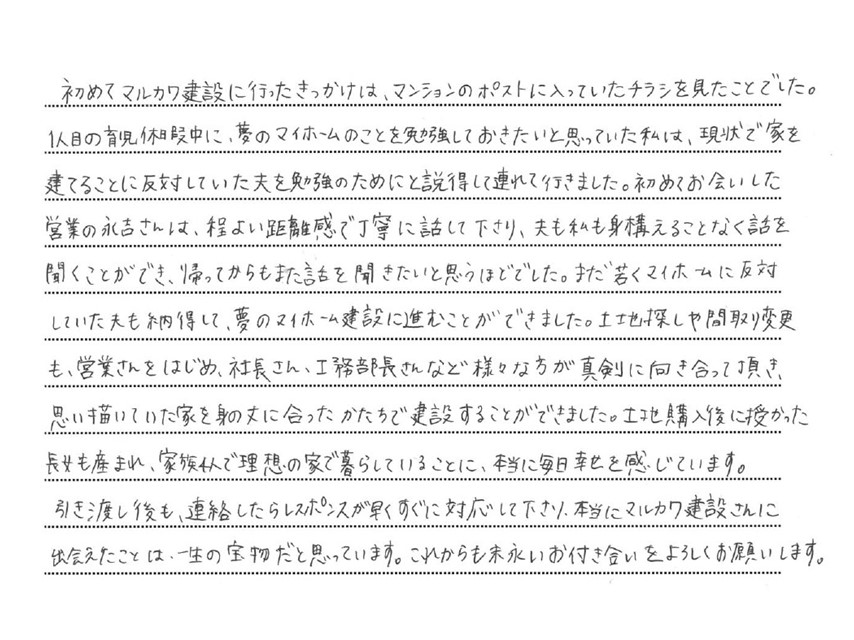 初めてマルカワ建設に行ったきっかけは、マンションのポストに入っていたチラシを見たことでした。
1人目の育児休暇中に、夢のマイホームのことを勉強しておきたいと思っていた私は、現状で家を
建てることに反対していた夫を勉強のためにと説得して連れて行きました。初めてお会いした
営業の永吉さんは、程よい距離感で丁寧に話して下さり、夫も私も身構えることなく話を
聞くことができ、帰ってからもまた話を聞きたいと思うほどでした。まだ若くマイホームに反対
していた夫も納得して、夢のマイホーム建設に進むことができました。土地探しや間取り変更
も、営業さんをはじめ、社長さん、工務部長さんなど様々な方が真剣に向き合って頂き、
思い描いていた家を身の丈に合ったかたちで建設することができました。土地購入後に授かった
長女も産まれ、家族4人で理想の家で暮らしていることに、本当に毎日幸せを感じています。
引き渡し後も、連絡したらレスポンスが早くすぐに対応して下さり、本当にマルカワ建設さんに
出会えたことは、一生の宝物だと思っています。これからも末永いお付き合いをよろしくお願いします。